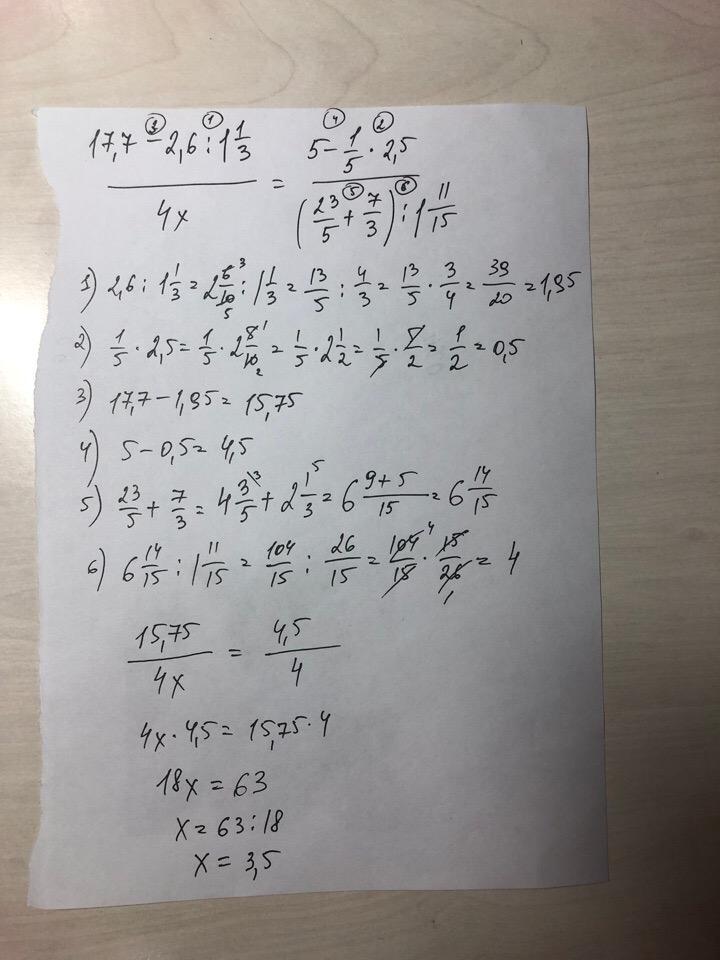 (17,7 − 2,6 : 1 1/3) / 4x = (5 − 1/5 · 2,5) / ((23/5 + 7/3) : 1 11/15)
1) 2,6 : 1 1/3 = 2 6/10 : 1 1/3 = 13/5 : 4/3 = 13/5 · 3/4 = 39/20 = 1,95
2) 1/5 · 2,5 = 1/5 · 2 5/10 = 1/5 · 2 1/2 = 1/5 · 5/2 = 1/2 = 0,5
3) 17,7 − 1,95 = 15,75
4) 5 − 0,5 = 4,5
5) 23/5 + 7/3 = 4 3/5 + 2 1/3 = 6 (9+5)/15 = 6 14/15
6) 6 14/15 : 1 11/15 = 104/15 : 26/15 = 104/15 · 15/26 = 4
15,75/4x = 4,5/4
4x · 4,5 = 15,75 · 4
18x = 63
x = 63 : 18
x = 3,5